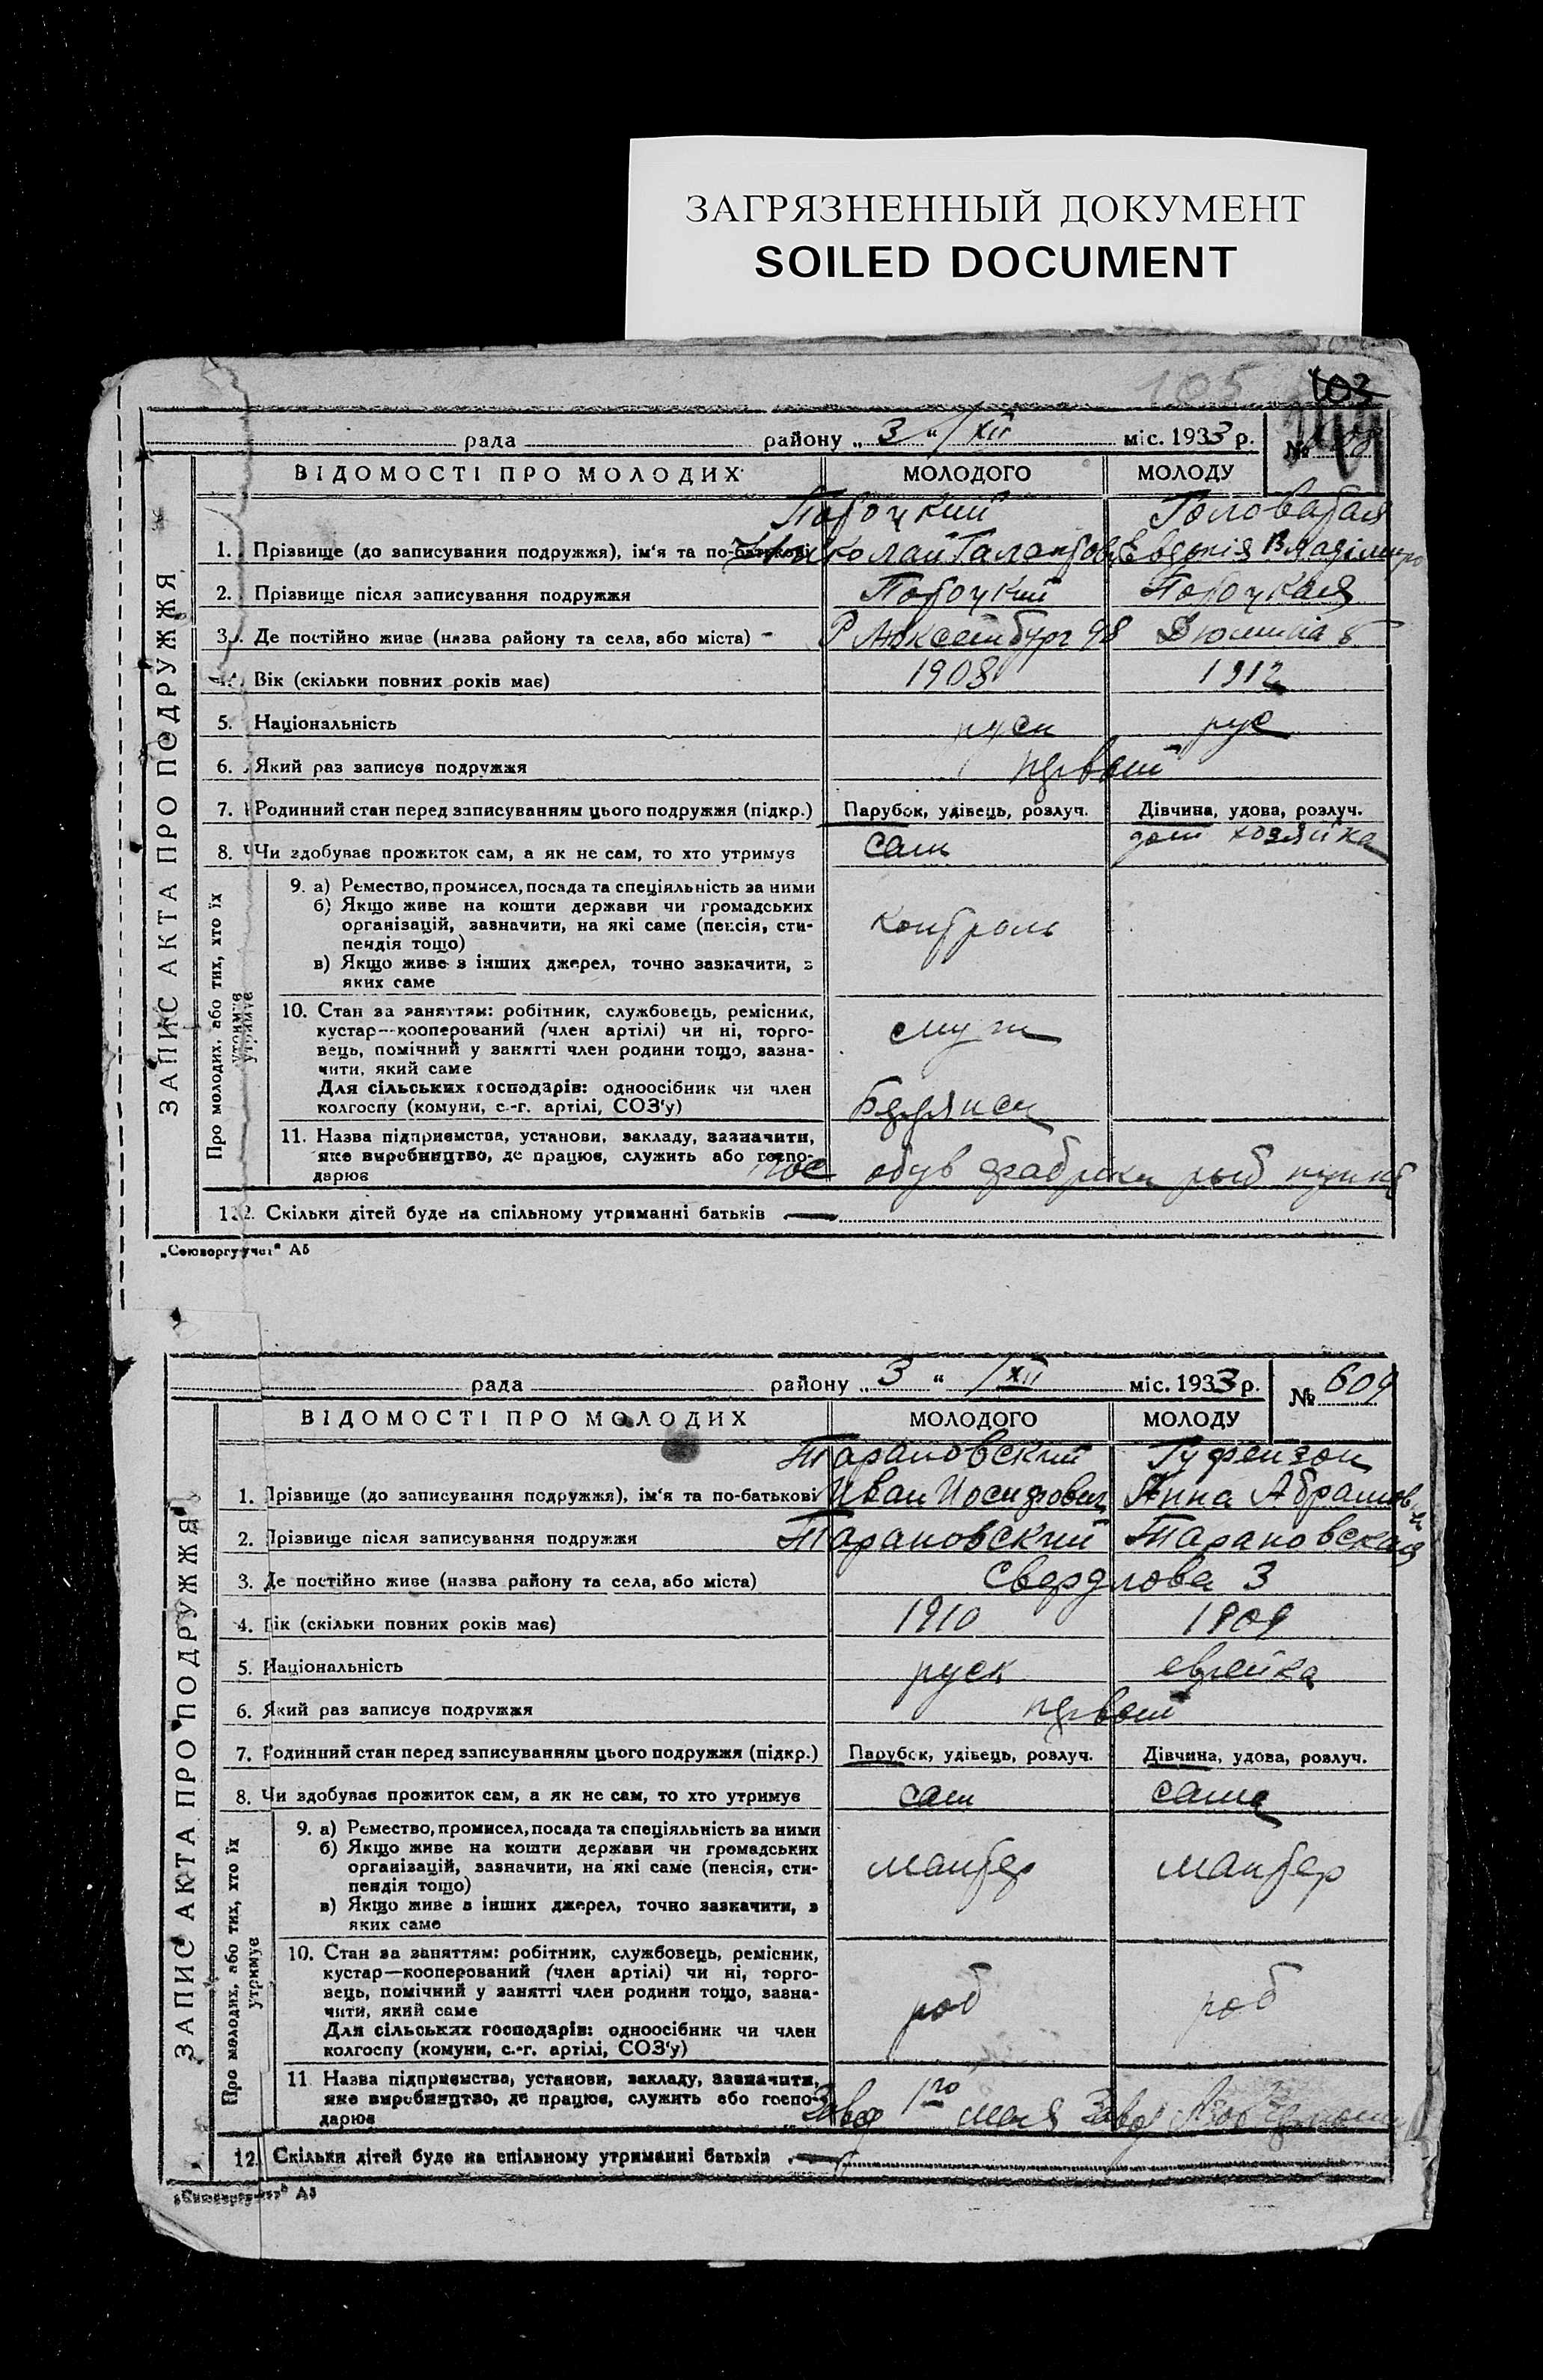 ЗАГРЯЗНЕННЫЙ ДОКУМЕНТ
SOILED DOCUMENT
105 103
рада району „ 3 “ / XII міс. 1933 р. №
ВІДОМОСТІ ПРО МОЛОДИХ МОЛОДОГО МОЛОДУ
ЗАПИС АКТА ПРО ПОДРУЖЖЯ
Потоцкий
1. Прізвище (до записування подружжя), ім'я та по-батькові Николай Евдокія
2. Прізвище після записування подружжя Потоцкий Потоцкая
3. Де постійно живе (назва району та села, або міста) Р Люксембург 48
4. Вік (скільки повних років має) 1908 1912
5. Національність руск рус
6. Який раз записує подружжя первый
7. Родинний стан перед записуванням цього подружжя (підкр.) Парубок, удівець, розлуч. Дівчина, удова, розлуч.
8. Чи здобуває прожиток сам, а як не сам, то хто утримує сам дом хозяйка
Про молодих, або тих, хто їх утримує
9. а) Ремество, промисел, посада та спеціяльність за ними
б) Якщо живе на кошти держави чи громадських
організацій, зазначити, на які саме (пенсія, сти-
пендія тощо)
в) Якщо живе з інших джерел, точно зазначити, з
яких саме
контроль
10. Стан за заняттям: робітник, службовець, ремісник,
кустар—кооперований (член артілі) чи ні, торго-
вець, помічний у занятті член родини тощо, зазна-
чити, який саме
Для сільських господарів: одноосібник чи член
колгоспу (комуни, с.-г. артілі, СОЗ'у)
служ
11. Назва підприємства, установи, закладу, зазначити,
яке виробництво, де працює, служить або госпо-
дарює
обув фабрика рыб пункт
12. Скільки дітей буде на спільному утриманні батьків —
„Союзоргучет“ А5
рада району „ 3 “ / XII міс. 1933 р. № 609
ВІДОМОСТІ ПРО МОЛОДИХ МОЛОДОГО МОЛОДУ
ЗАПИС АКТА ПРО ПОДРУЖЖЯ
Тарановский Гуфензон
1. Прізвище (до записування подружжя), ім'я та по-батькові Иван Иосифович Анна Абрамов
2. Прізвище після записування подружжя Тарановский Тарановская
3. Де постійно живе (назва району та села, або міста) Свердлова 3
4. Вік (скільки повних років має) 1910 1909
5. Національність руск еврейка
6. Який раз записує подружжя первый
7. Родинний стан перед записуванням цього подружжя (підкр.) Парубок, удівець, розлуч. Дівчина, удова, розлуч.
8. Чи здобуває прожиток сам, а як не сам, то хто утримує сам сама
Про молодих, або тих, хто їх утримує
9. а) Ремество, промисел, посада та спеціяльність за ними
б) Якщо живе на кошти держави чи громадських
організацій, зазначити, на які саме (пенсія, сти-
пендія тощо)
в) Якщо живе з інших джерел, точно зазначити, з
яких саме
мантер мантер
10. Стан за заняттям: робітник, службовець, ремісник,
кустар—кооперований (член артілі) чи ні, торго-
вець, помічний у занятті член родини тощо, зазна-
чити, який саме
Для сільських господарів: одноосібник чи член
колгоспу (комуни, с.-г. артілі, СОЗ'у)
роб роб
11. Назва підприємства, установи, закладу, зазначити,
яке виробництво, де працює, служить або госпо-
дарює
Завод 1го мая Завод
12. Скільки дітей буде на спільному утриманні батьків —
„Союзоргучет“ А5